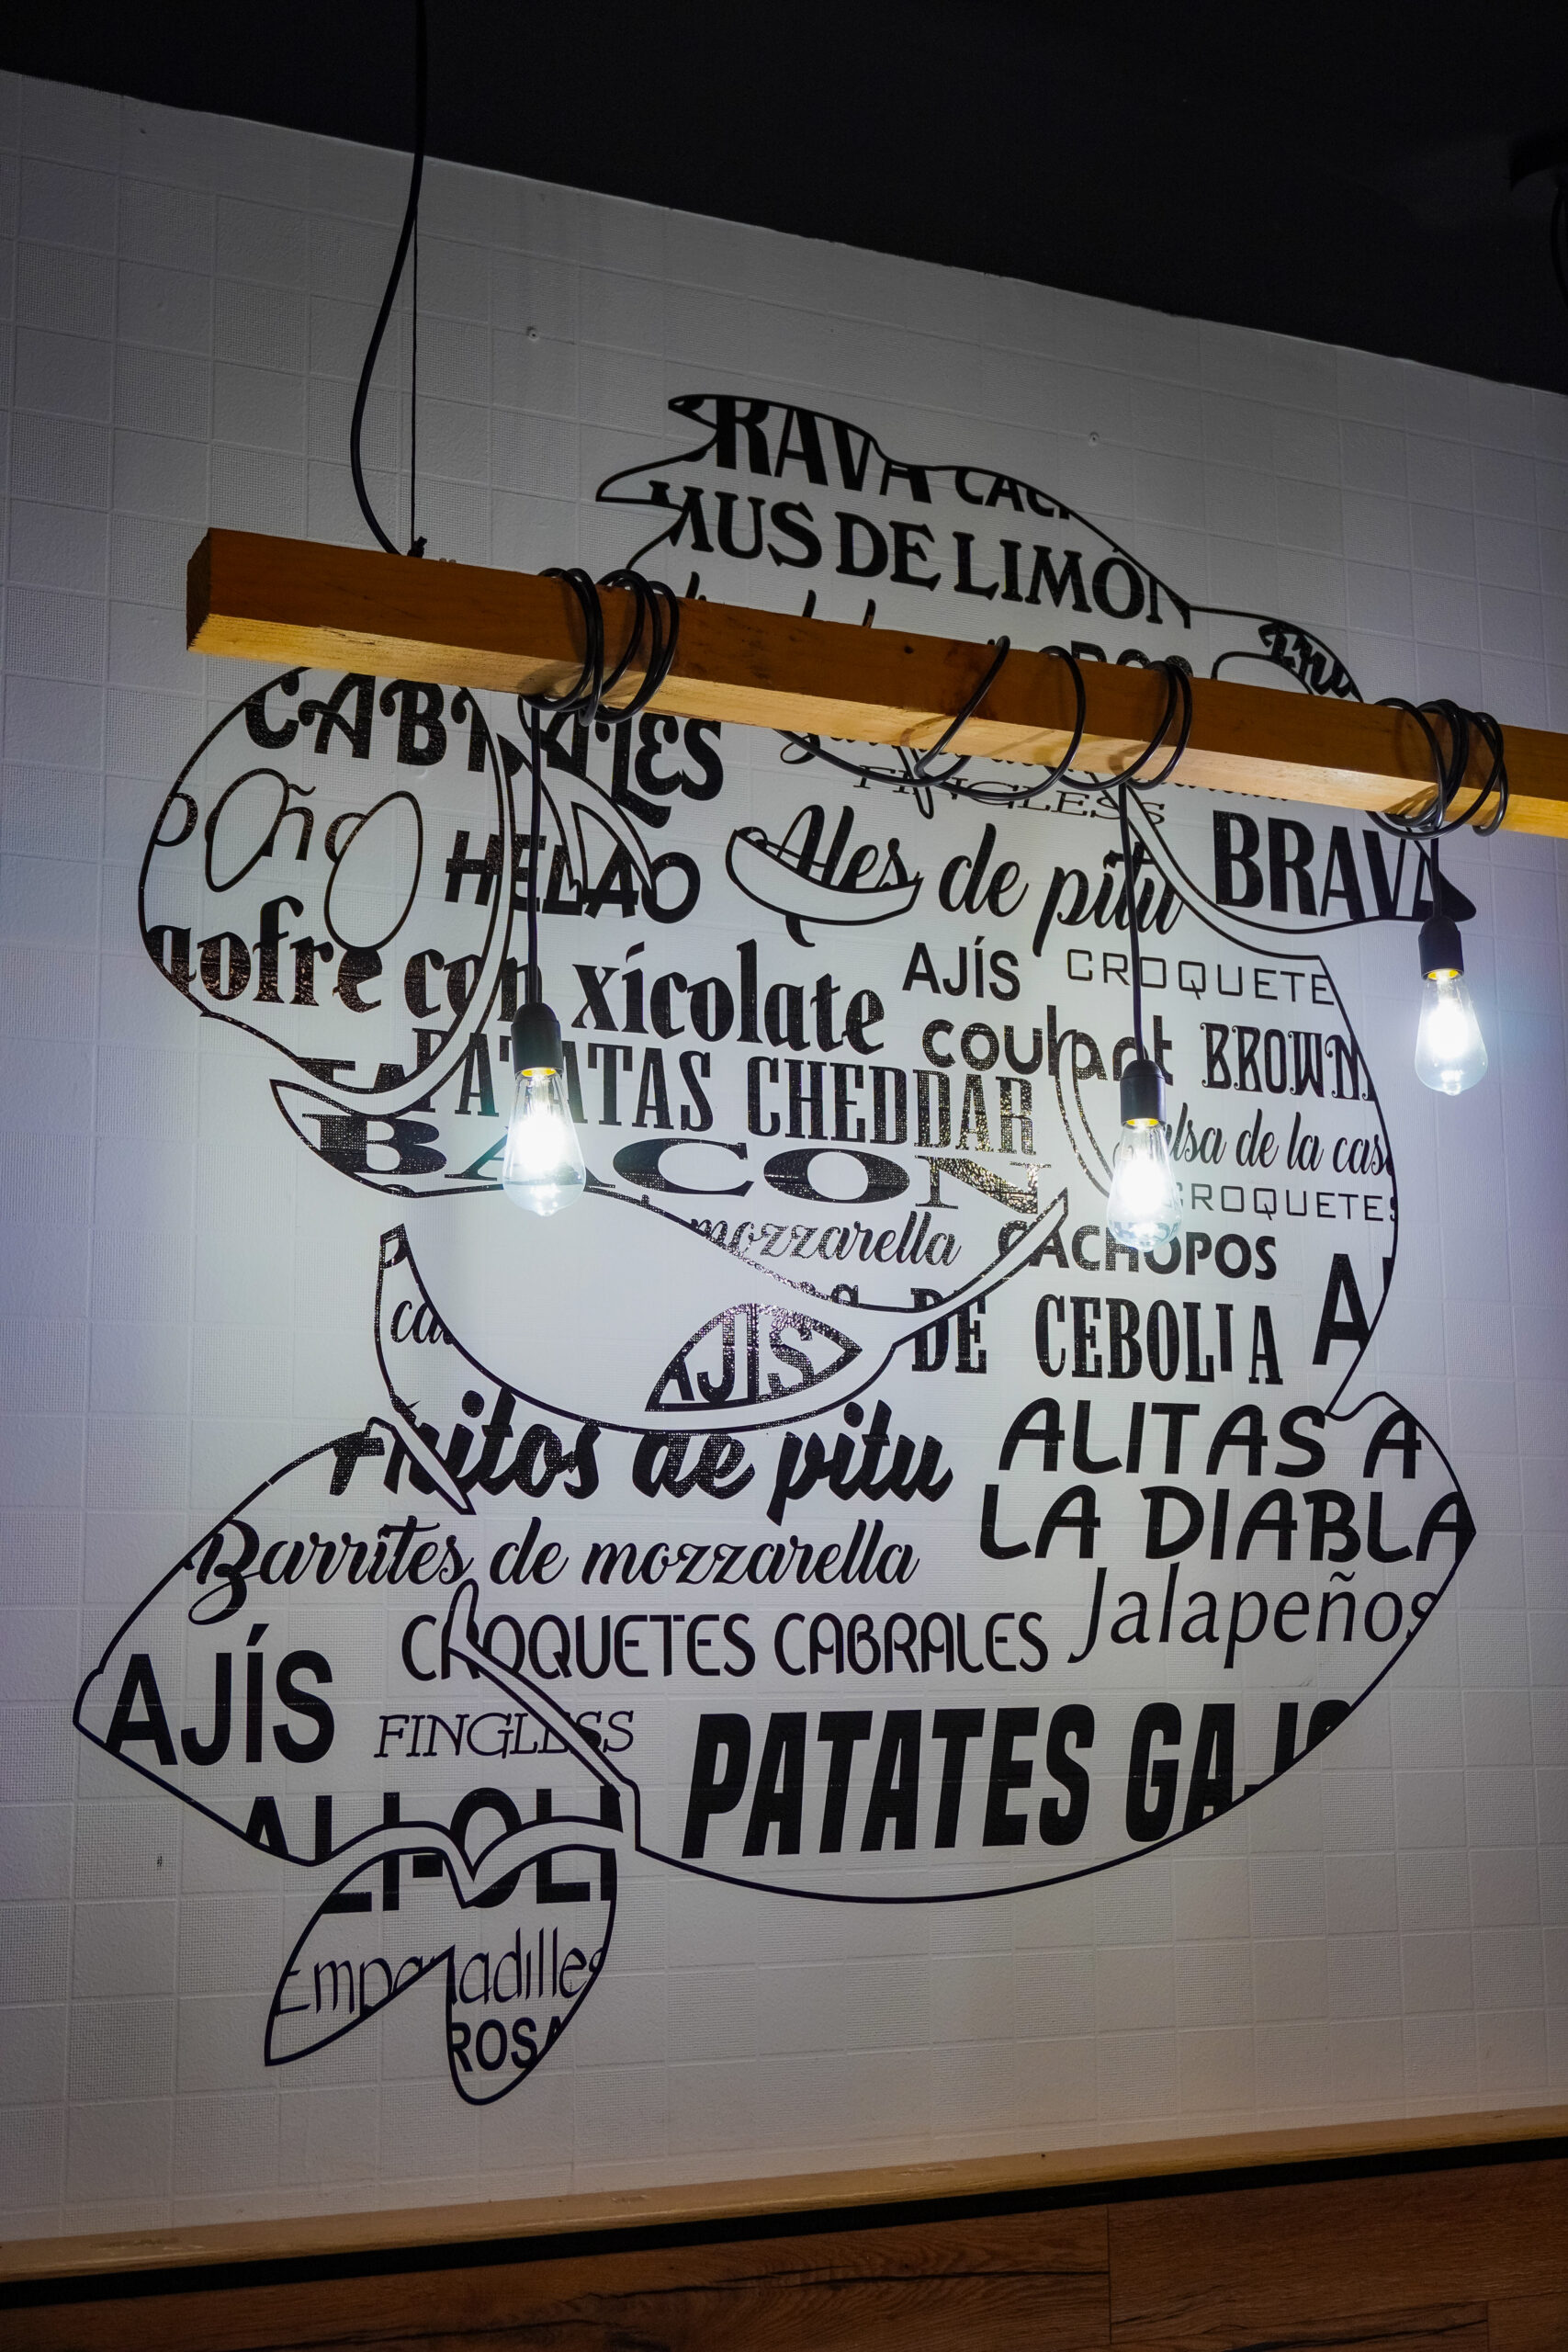 RAVA
MUS DE LIMÓN
CABRALES
FINGLESS
HELAO
Ales de pitu
BRAVA
gofre con xicolate
AJÍS
CROQUETE
coulant
BROWN
PATATAS CHEDDAR
BACON
salsa de la casa
CROQUETES
mozzarella
CACHOPOS
AJÍS
DE CEBOLLA
Fritos de pitu
ALITAS A
LA DIABLA
Barrites de mozzarella
Jalapeños
CROQUETES CABRALES
AJÍS
FINGLESS
PATATES GAJO
ALLIOLI
Empanadilles
ROSA